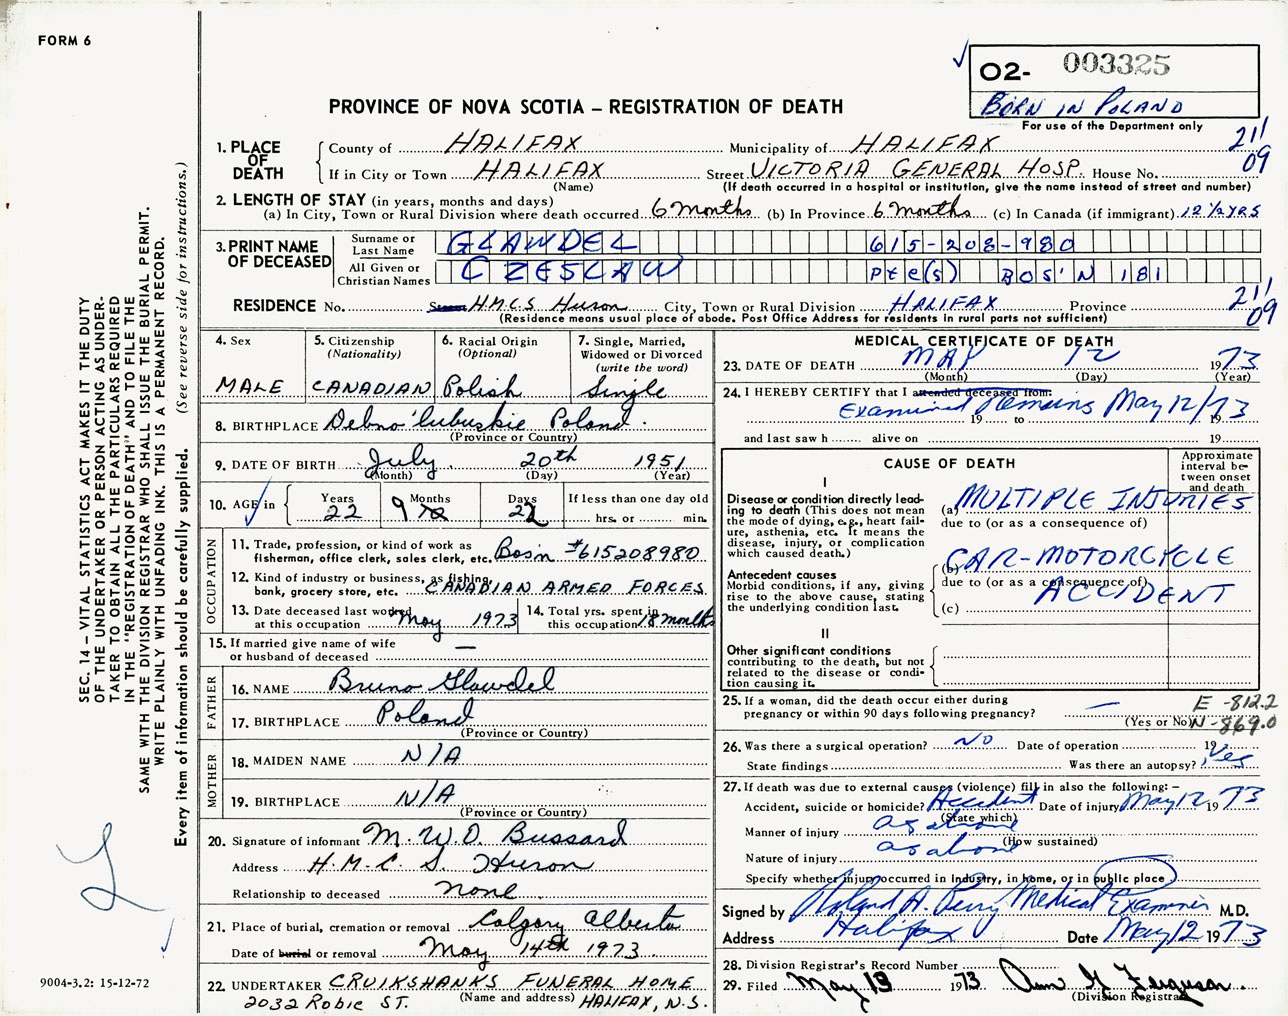 FORM 6
O2- 003325
BORN IN POLAND
For use of the Department only
PROVINCE OF NOVA SCOTIA – REGISTRATION OF DEATH
21'
09
1. PLACE OF DEATH
County of HALIFAX Municipality of HALIFAX
If in City or Town HALIFAX Street VICTORIA GENERAL HOSP. House No.
(Name) (If death occurred in a hospital or institution, give the name instead of street and number)
2. LENGTH OF STAY (in years, months and days)
(a) In City, Town or Rural Division where death occurred 6 months (b) In Province 6 months (c) In Canada (if immigrant) 12 ½ YRS
3. PRINT NAME OF DECEASED
Surname or Last Name GLAWDEL 615-208-980
All Given or Christian Names CZESLAW Pte(s) BOS'N 181
RESIDENCE No. H.M.C.S Huron City, Town or Rural Division HALIFAX Province
21'
09
(Residence means usual place of abode. Post Office Address for residents in rural parts not sufficient)
4. Sex
MALE
5. Citizenship (Nationality)
CANADIAN
6. Racial Origin (Optional)
Polish
7. Single, Married, Widowed or Divorced (write the word)
Single
8. BIRTHPLACE Debno 'Lubuskie Poland.
(Province or Country)
9. DATE OF BIRTH July 20th 1951
(Month) (Day) (Year)
10. AGE in
Years Months Days If less than one day old
22 9 22 hrs. or min.
OCCUPATION
11. Trade, profession, or kind of work as fisherman, office clerk, sales clerk, etc. Bos'n #615208980
12. Kind of industry or business, as fishing, bank, grocery store, etc. CANADIAN ARMED FORCES
13. Date deceased last worked at this occupation May 1973
14. Total yrs. spent in this occupation 18 months
15. If married give name of wife or husband of deceased —
FATHER
16. NAME Bruno Glawdel
17. BIRTHPLACE Poland
(Province or Country)
MOTHER
18. MAIDEN NAME N/A
19. BIRTHPLACE N/A
(Province or Country)
20. Signature of informant M. W. O. Bussard
Address H.M.C S. Huron
Relationship to deceased none
21. Place of burial, cremation or removal Calgary Alberta
Date of burial or removal May 14th 1973
22. UNDERTAKER CRUIKSHANKS FUNERAL HOME
(Name and address)
2032 Robie ST. HALIFAX, N.S.
MEDICAL CERTIFICATE OF DEATH
23. DATE OF DEATH MAY 12 1973
(Month) (Day) (Year)
24. I HEREBY CERTIFY that I attended deceased from:
Examined Remains May 12/73
19 to 19
and last saw h alive on 19
CAUSE OF DEATH
Approximate interval between onset and death
I
Disease or condition directly leading to death (This does not mean the mode of dying, e.g., heart failure, asthenia, etc. It means the disease, injury, or complication which caused death.)
(a) MULTIPLE INJURIES
due to (or as a consequence of)
Antecedent causes
Morbid conditions, if any, giving rise to the above cause, stating the underlying condition last.
(b) CAR-MOTORCYCLE
due to (or as a consequence of)
ACCIDENT
(c)
II
Other significant conditions
contributing to the death, but not related to the disease or condition causing it.
25. If a woman, did the death occur either during pregnancy or within 90 days following pregnancy? —
(Yes or No)
E -812.2
N -869.0
26. Was there a surgical operation? NO Date of operation 19
State findings Was there an autopsy? Yes
27. If death was due to external causes (violence) fill in also the following: –
Accident, suicide or homicide? Accident Date of injury May 12 1973
(State which)
Manner of injury as above
(How sustained)
Nature of injury as above
Specify whether injury occurred in industry, in home, or in public place
Signed by Roland A. Perry Medical Examiner M.D.
Address Halifax Date May 12 1973
28. Division Registrar's Record Number
29. Filed May 13 1973 Ann G Ferguson.
(Division Registrar)
SEC. 14 – VITAL STATISTICS ACT MAKES IT THE DUTY
OF THE UNDERTAKER OR PERSON ACTING AS UNDER-
TAKER TO OBTAIN ALL THE PARTICULARS REQUIRED
IN THE "REGISTRATION OF DEATH" AND TO FILE THE
SAME WITH THE DIVISION REGISTRAR WHO SHALL ISSUE THE BURIAL PERMIT.
WRITE PLAINLY WITH UNFADING INK. THIS IS A PERMANENT RECORD.
Every item of information should be carefully supplied. (See reverse side for instructions.)
9004-3.2: 15-12-72